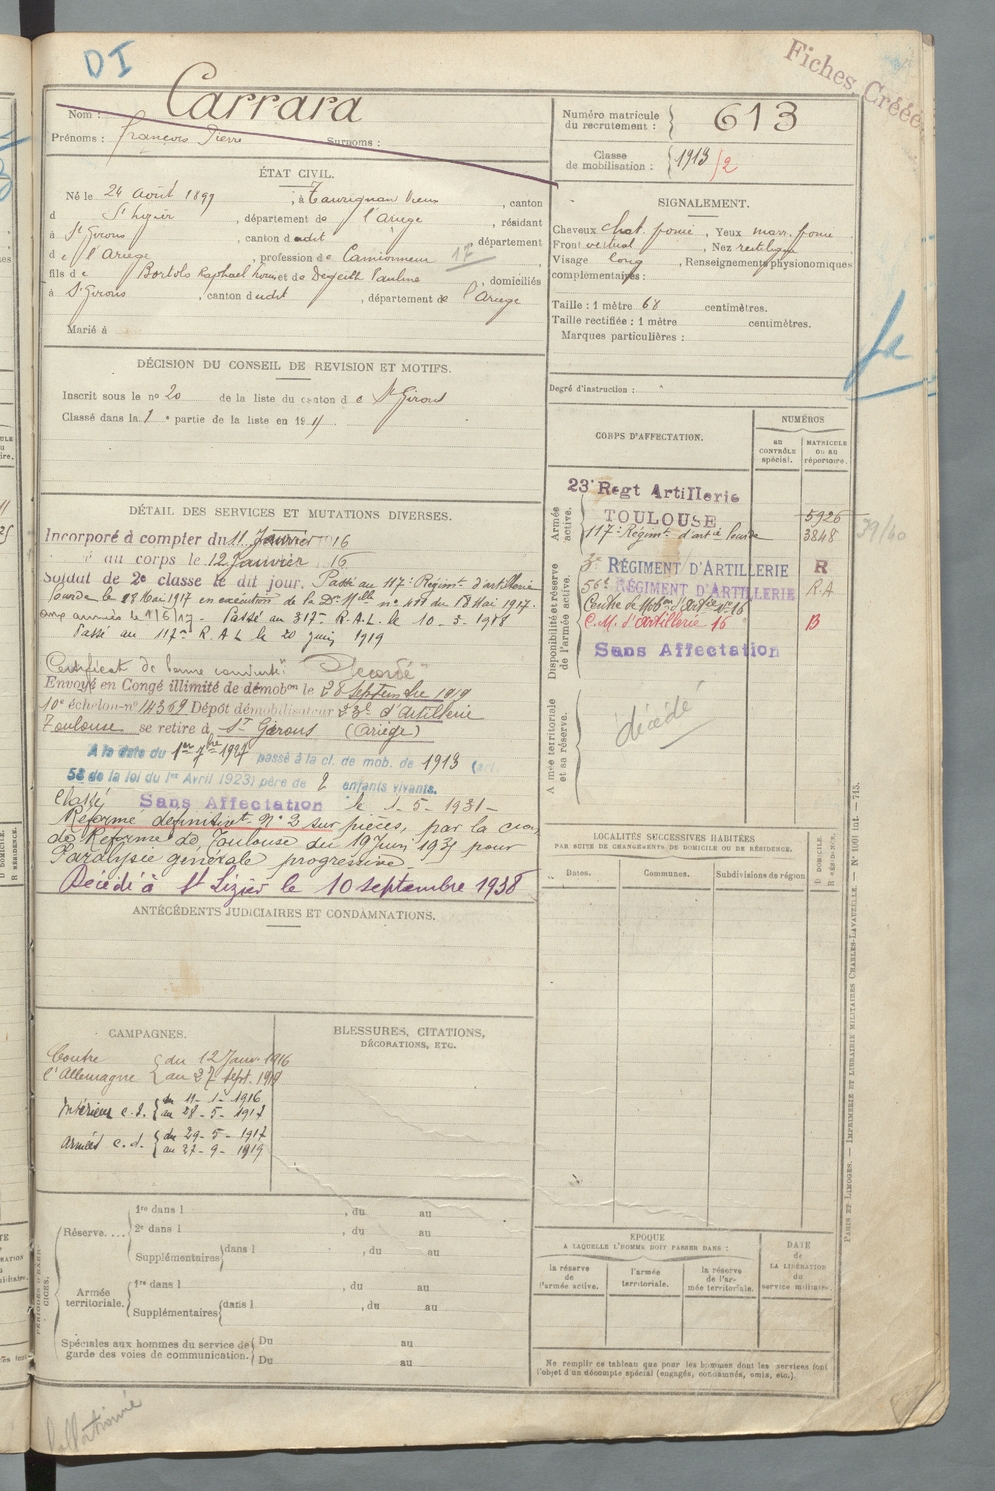 DI
Fiches Créées
Nom : Carrara
Prénoms : François Pierre Surnoms :
Numéro matricule
du recrutement : 613
Classe
de mobilisation : 1913/2
ÉTAT CIVIL.
Né le 24 Août 1897, à Taurignan Vieux, canton
d St Lizier, département de l'Ariège, résidant
à St Girons, canton dudit, département
de l'Ariège, profession de Camionneur 17
fils de Bortolo Raphael et de Degeilh Pauline domiciliés
à St Girons, canton dudit, département de l'Ariège
Marié à
SIGNALEMENT.
Cheveux chat. foncé, Yeux marr. foncé
Front vertical, Nez rectiligne
Visage long, Renseignements physionomiques
complémentaires:
Taille : 1 mètre 68 centimètres.
Taille rectifiée : 1 mètre centimètres.
Marques particulières :
Degré d'instruction :
DÉCISION DU CONSEIL DE REVISION ET MOTIFS.
Inscrit sous le no 20 de la liste du canton de St Girons
Classé dans la 1e partie de la liste en 191
CORPS D'AFFECTATION.
NUMÉROS
AU CONTRÔLE spécial.
MATRICULE ou au répertoire.
Armée active.
23e Regt Artillerie
TOULOUSE 5926
117e Régimt d'artie lourde 3848
39/40
Disponibilité et réserve de l'armée active.
3e RÉGIMENT D'ARTILLERIE R
56e RÉGIMENT D'ARTILLERIE R.A
Centre de Mobon d'Artie no 16
C.M. d'artillerie 16 B
Sans Affectation
Armée territoriale et sa réserve.
décédé
DÉTAIL DES SERVICES ET MUTATIONS DIVERSES.
Incorporé à compter du 11 Janvier 1916
au corps le 12 Janvier 16
Soldat de 2e classe le dit jour. Passé au 117e Régimt d'artillerie
lourde le 28 Mai 1917 en exécution de la Dn Mlle no du 18 Mai 1917.
aux armées le Passé au 317e R.A.L. le 10-3-1918
Passé au 117e R.A.L le 20 juin 1919
Certificat de bonne conduite "Accordé"
Envoyé en Congé illimité de démobon le 28 Septembre 1919
10e échelon no 14369 Dépôt démobilisateur 23e d'Artillerie
Toulouse se retire à St Girons (Ariège)
A la date du 1er 7bre 1927 passé à la cl. de mob. de 1913 (art.
58 de la loi du 1er Avril 1923) père de 2 enfants vivants.
Classé Sans Affectation le 1-5-1931-
Réforme définitive No 2 sur pièces, par la Con
de Réforme de Toulouse du 19 juin 193 pour
Paralysie générale progressive.
Décédé à St Lizier le 10 septembre 1938
ANTÉCÉDENTS JUDICIAIRES ET CONDAMNATIONS.
LOCALITÉS SUCCESSIVES HABITÉES
PAR SUITE DE CHANGEMENTS DE DOMICILE OU DE RÉSIDENCE.
Dates. Communes. Subdivisions de région D DOMICILE. R RÉSIDENCE.
CAMPAGNES.
Contre du 12 Janv. 1916
l'Allemagne au 27 Sept. 1919
Intérieur c.d. du 11-1-1916
au 28-5-1917
Armées c.d. du 29-5-1917
au 27-9-1919
BLESSURES, CITATIONS,
DÉCORATIONS, ETC.
PÉRIODES D'EXERCICES.
Réserve....
1re dans l , du au
2e dans l , du au
Supplémentaires dans l , du au
Armée territoriale.
1re dans l , du au
Supplémentaires dans l , du au
Spéciales aux hommes du service de Du au
garde des voies de communication. Du au
ÉPOQUE
A LAQUELLE L'HOMME DOIT PASSER DANS :
la réserve de l'armée active.
l'armée territoriale.
la réserve de l'armée territoriale.
DATE de LA LIBÉRATION du service militaire.
Ne remplir ce tableau que pour les hommes dont les services font
l'objet d'un décompte spécial (engagés, condamnés, omis, etc.).
PARIS ET LIMOGES. — IMPRIMERIE ET LIBRAIRIE MILITAIRES CHARLES-LAVAUZELLE. — No 1001 int. — 715.